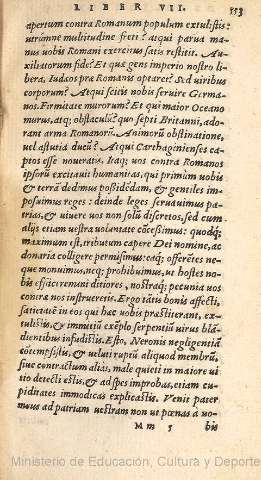 LIBER VII. 553
apertum contra Romanum populum extulistis:
utrùmne multitudine freti? atqui parua ma-
nus uobis Romani exercitus satis restitit. Au-
xiliatorum fide? Et quæ gens imperio nostro li-
bera, Iudæos præ Romanis optaret? Sed uiribus
corporum? Atqui scitis nobis seruire Germa-
nos. Firmitate murorum? Et qui maior Oceano
murus, atq; obstaculū? quo septi Britanni, ado-
rant arma Romanorū. Animorū obstinatione,
uel astutia ducū? Atqui Carthaginienses ca-
ptos esse noueratis. Itaq; uos contra Romanos
ipsorū excitauit humanitas, qui primùm uobis
& terrā dedimus possidēdam, & gentiles im-
posuimus reges: deinde leges seruauimus pa-
trias, & uiuere uos non solū discretos, sed cum
alijs etiam uestra uoluntate cōcessimus: quodq;
maximum est, tributum capere Dei nomine, ac
donaria colligere permisimus: eaq; offerētes ne-
que monuimus, neq; prohibuimus, ut hostes no-
bis efficeremini ditiores, nostraq; pecunia uos
contra nos instrueretis. Ergo tātis bonis affecti,
satietatē in eos qui hæc uobis præstiterant, ex-
tulistis, & immitiū exēplo serpentiū uirus blā-
dientibus infudistis. Esto, Neronis negligentiā
cōtempsistis, & ueluti ruptū aliquod membrū,
siue contractum alias, male quieti in maiore ui-
tio detecti estis, & ad spes improbas, etiam cu-
piditates immodicas explicastis. Venit pater
meus ad patriam uestram non ut pœnas à uo-
M m 5 bis
Ministerio de Educación, Cultura y Deporte